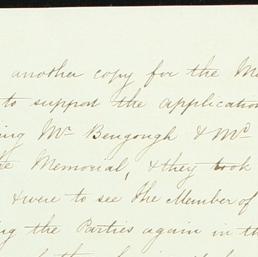 another copy for the Me
to support the application
ing Mr Bengough & Mc
the Memorial, & they took
& were to see the Member of
ng the Parties again in th